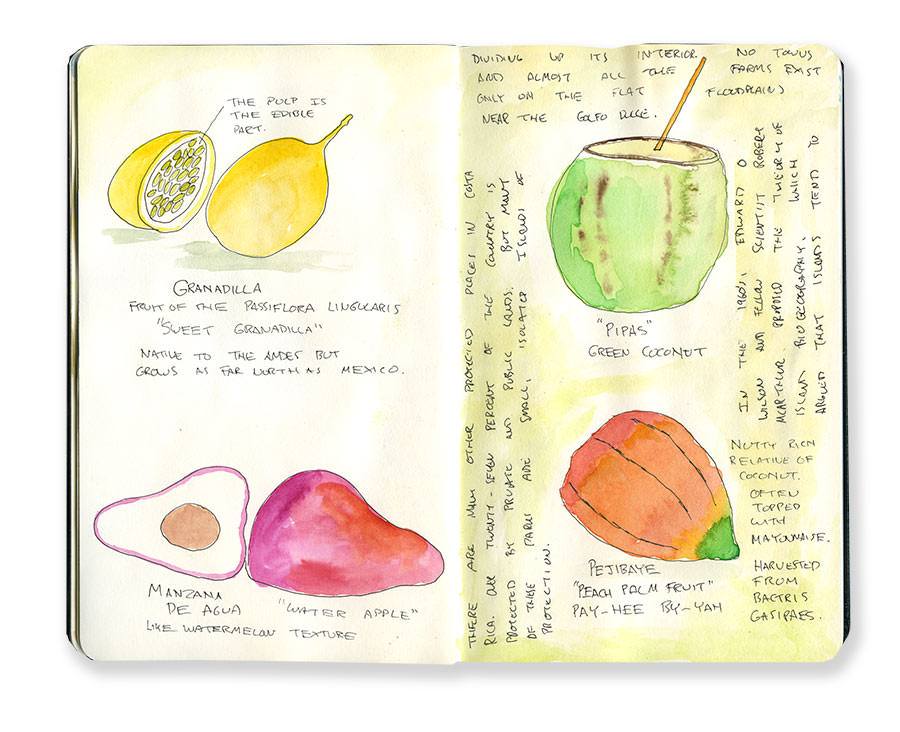 THE PULP IS
THE EDIBLE
PART.
GRANADILLA
FRUIT OF THE PASSIFLORA LINGULARIS
"SWEET GRANADILLA"
NATIVE TO THE ANDES BUT
GROWS AS FAR NORTH AS MEXICO.
MANZANA
DE AGUA
"WATER APPLE"
LIKE WATERMELON TEXTURE
DIVIDING UP ITS INTERIOR. NO TOWNS
AND ALMOST ALL THE FARMS EXIST
ONLY ON THE FLAT FLOODPLAINS
NEAR THE GOLFO DULCE.
THERE ARE MANY OTHER PROTECTED PLACES IN COSTA
RICA. OVER TWENTY-SEVEN PERCENT OF THE COUNTRY IS
PROTECTED BY PRIVATE AND PUBLIC LANDS. BUT MANY
OF THESE PARKS ARE SMALL, ISOLATED ISLANDS OF
PROTECTION.
"PIPAS"
GREEN COCONUT
IN THE 1960s, EDWARD O
WILSON AND FELLOW SCIENTIST ROBERT
MCARTHUR PROPOSED THE THEORY OF
ISLAND BIOGEOGRAPHY, WHICH
ARGUED THAT ISLANDS TEND TO
PEJIBAYE
"PEACH PALM FRUIT"
PAY-HEE BY-YAH
NUTTY RICH
RELATIVE OF
COCONUT.
OFTEN
TOPPED
WITH
MAYONNAISE.
HARVESTED
FROM
BACTRIS
GASIPAES.